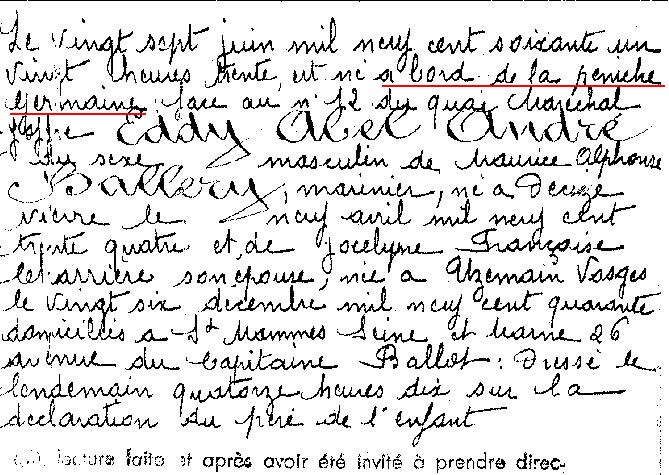 Le vingt sept juin mil neuf cent soixante un
vingt heures trente, est né a bord de la peniche
Germaine face au n° 12 du quai Maréchal
Joffre Eddy Abel André
du sexe masculin de Maurice Alphonse
Ballery, marinier, né a Decize
Nievre le neuf avril mil neuf cent
trente quatre et de Jocelyne Françoise
son épouse, née a Uzemain Vosges
le vingt six décembre mil neuf cent quarante
domiciliés a St Mammes Seine et Marne 26
avenue du Capitaine Ballot : Dressé le
lendemain quatorze heures dix sur la
declaration du père de l'enfant
lecture faite et après avoir été invité à prendre direc-